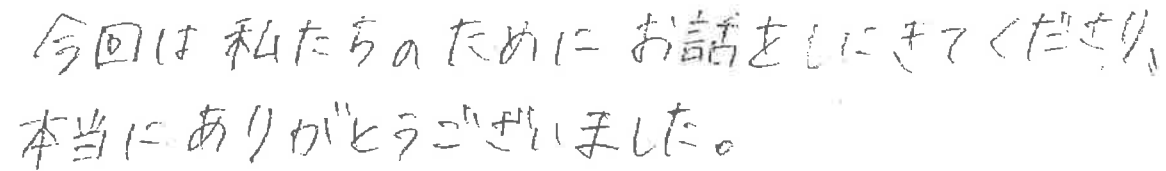 今回は私たちのためにお話をしにきてくださり、
本当にありがとうございました。